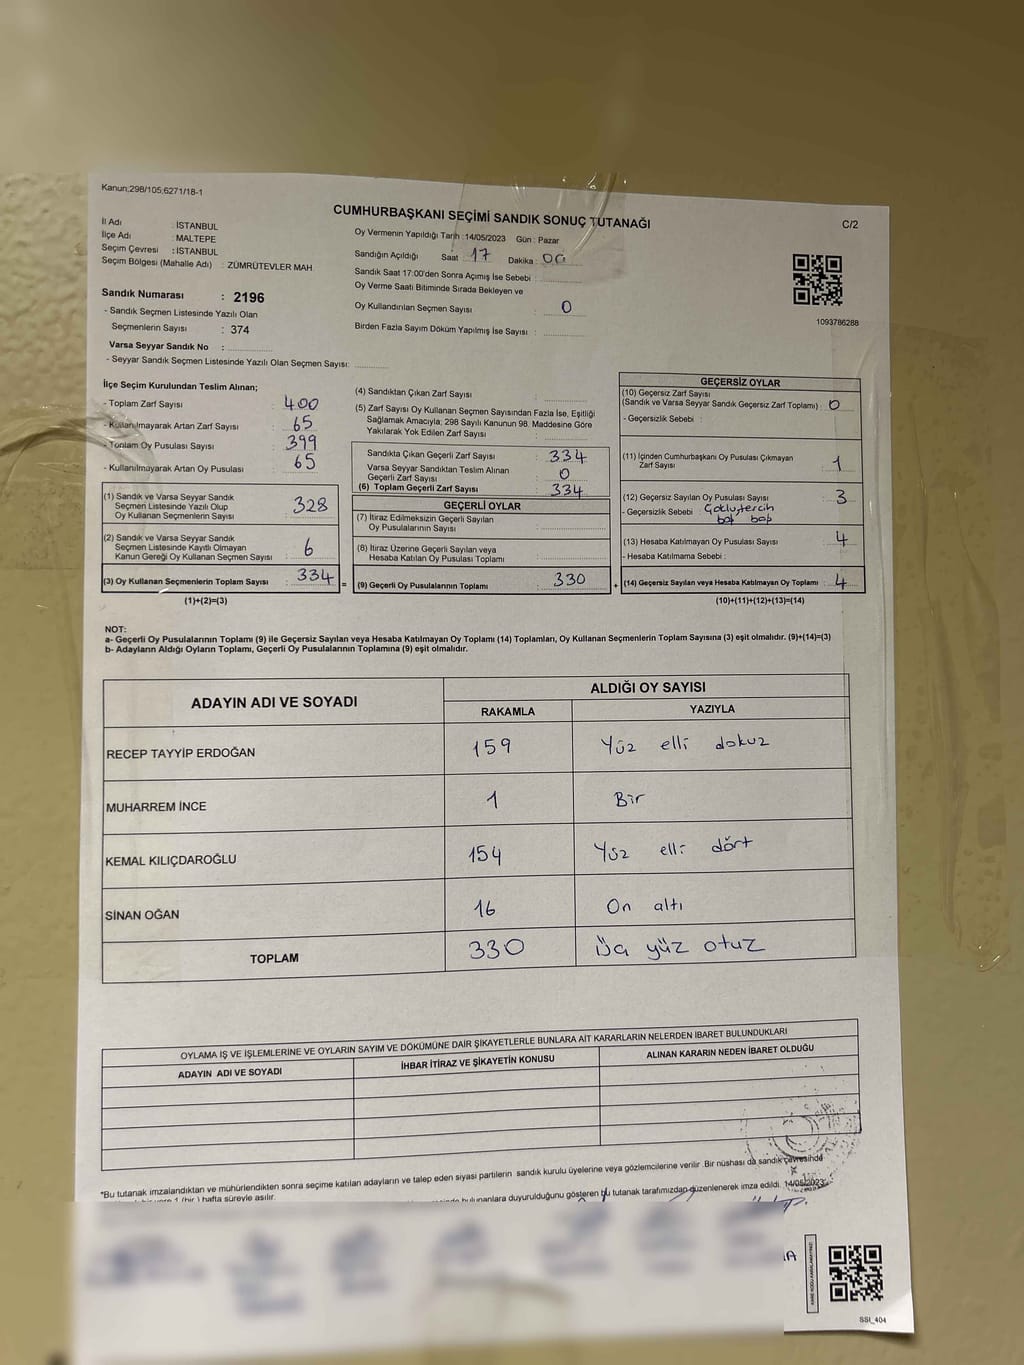 Kanun;298/105;6271/18-1
CUMHURBAŞKANI SEÇİMİ SANDIK SONUÇ TUTANAĞI
C/2
İl Adı : İSTANBUL
İlçe Adı : MALTEPE
Seçim Çevresi : İSTANBUL
Seçim Bölgesi (Mahalle Adı) : ZÜMRÜTEVLER MAH
Sandık Numarası : 2196
- Sandık Seçmen Listesinde Yazılı Olan
Seçmenlerin Sayısı : 374
Varsa Seyyar Sandık No :
- Seyyar Sandık Seçmen Listesinde Yazılı Olan Seçmen Sayısı:
Oy Vermenin Yapıldığı Tarih :14/05/2023 Gün : Pazar
Sandığın Açıldığı Saat 17 Dakika : 00
Sandık Saat 17:00'den Sonra Açımış İse Sebebi :
Oy Verme Saati Bitiminde Sırada Bekleyen ve
Oy Kullandırılan Seçmen Sayısı : 0
Birden Fazla Sayım Döküm Yapılmış İse Sayısı :
1093786288
İlçe Seçim Kurulundan Teslim Alınan;
- Toplam Zarf Sayısı : 400
- Kullanılmayarak Artan Zarf Sayısı : 65
- Toplam Oy Pusulası Sayısı : 399
- Kullanılmayarak Artan Oy Pusulası : 65
(1) Sandık ve Varsa Seyyar Sandık
Seçmen Listesinde Yazılı Olup
Oy Kullanan Seçmenlerin Sayısı : 328
(2) Sandık ve Varsa Seyyar Sandık
Seçmen Listesinde Kayıtlı Olmayan
Kanun Gereği Oy Kullanan Seçmen Sayısı : 6
(3) Oy Kullanan Seçmenlerin Toplam Sayısı : 334 =
(1)+(2)=(3)
(4) Sandıktan Çıkan Zarf Sayısı :
(5) Zarf Sayısı Oy Kullanan Seçmen Sayısından Fazla İse, Eşitliği
Sağlamak Amacıyla; 298 Sayılı Kanunun 98. Maddesine Göre
Yakılarak Yok Edilen Zarf Sayısı :
Sandıkta Çıkan Geçerli Zarf Sayısı : 334
Varsa Seyyar Sandıktan Teslim Alınan
Geçerli Zarf Sayısı : 0
(6) Toplam Geçerli Zarf Sayısı : 334
GEÇERLİ OYLAR
(7) İtiraz Edilmeksizin Geçerli Sayılan
Oy Pusulalarının Sayısı :
(8) İtiraz Üzerine Geçerli Sayılan veya
Hesaba Katılan Oy Pusulası Toplamı :
(9) Geçerli Oy Pusulalarının Toplamı : 330 +
GEÇERSİZ OYLAR
(10) Geçersiz Zarf Sayısı
(Sandık ve Varsa Seyyar Sandık Geçersiz Zarf Toplamı) : 0
- Geçersizlik Sebebi :
(11) İçinden Cumhurbaşkanı Oy Pusulası Çıkmayan
Zarf Sayısı : 1
(12) Geçersiz Sayılan Oy Pusulası Sayısı : 3
- Geçersizlik Sebebi : Çoklu tercih
boş boş
(13) Hesaba Katılmayan Oy Pusulası Sayısı : 4
- Hesaba Katılmama Sebebi :
(14) Geçersiz Sayılan veya Hesaba Katılmayan Oy Toplamı : 4
(10)+(11)+(12)+(13)=(14)
NOT:
a- Geçerli Oy Pusulalarının Toplamı (9) ile Geçersiz Sayılan veya Hesaba Katılmayan Oy Toplamı (14) Toplamları, Oy Kullanan Seçmenlerin Toplam Sayısına (3) eşit olmalıdır. (9)+(14)=(3)
b- Adayların Aldığı Oyların Toplamı, Geçerli Oy Pusulalarının Toplamına (9) eşit olmalıdır.
ADAYIN ADI VE SOYADI ALDIĞI OY SAYISI
RAKAMLA YAZIYLA
RECEP TAYYİP ERDOĞAN 159 Yüz elli dokuz
MUHARREM İNCE 1 Bir
KEMAL KILIÇDAROĞLU 154 Yüz elli dört
SİNAN OĞAN 16 On altı
TOPLAM 330 Üç yüz otuz
OYLAMA İŞ VE İŞLEMLERİNE VE OYLARIN SAYIM VE DÖKÜMÜNE DAİR ŞİKAYETLERLE BUNLARA AİT KARARLARIN NELERDEN İBARET BULUNDUKLARI
ADAYIN ADI VE SOYADI İHBAR İTİRAZ VE ŞİKAYETİN KONUSU ALINAN KARARIN NEDEN İBARET OLDUĞU
*Bu tutanak imzalandıktan ve mühürlendikten sonra seçime katılan adayların ve talep eden siyasi partilerin sandık kurulu üyelerine veya gözlemcilerine verilir .Bir nüshası da sandık çevresinde
1 (bir ) hafta süreyle asılır.
bulunanlara duyurulduğunu gösteren bu tutanak tarafımızdan düzenlenerek imza edildi. 14/05/2023
SSİ_404